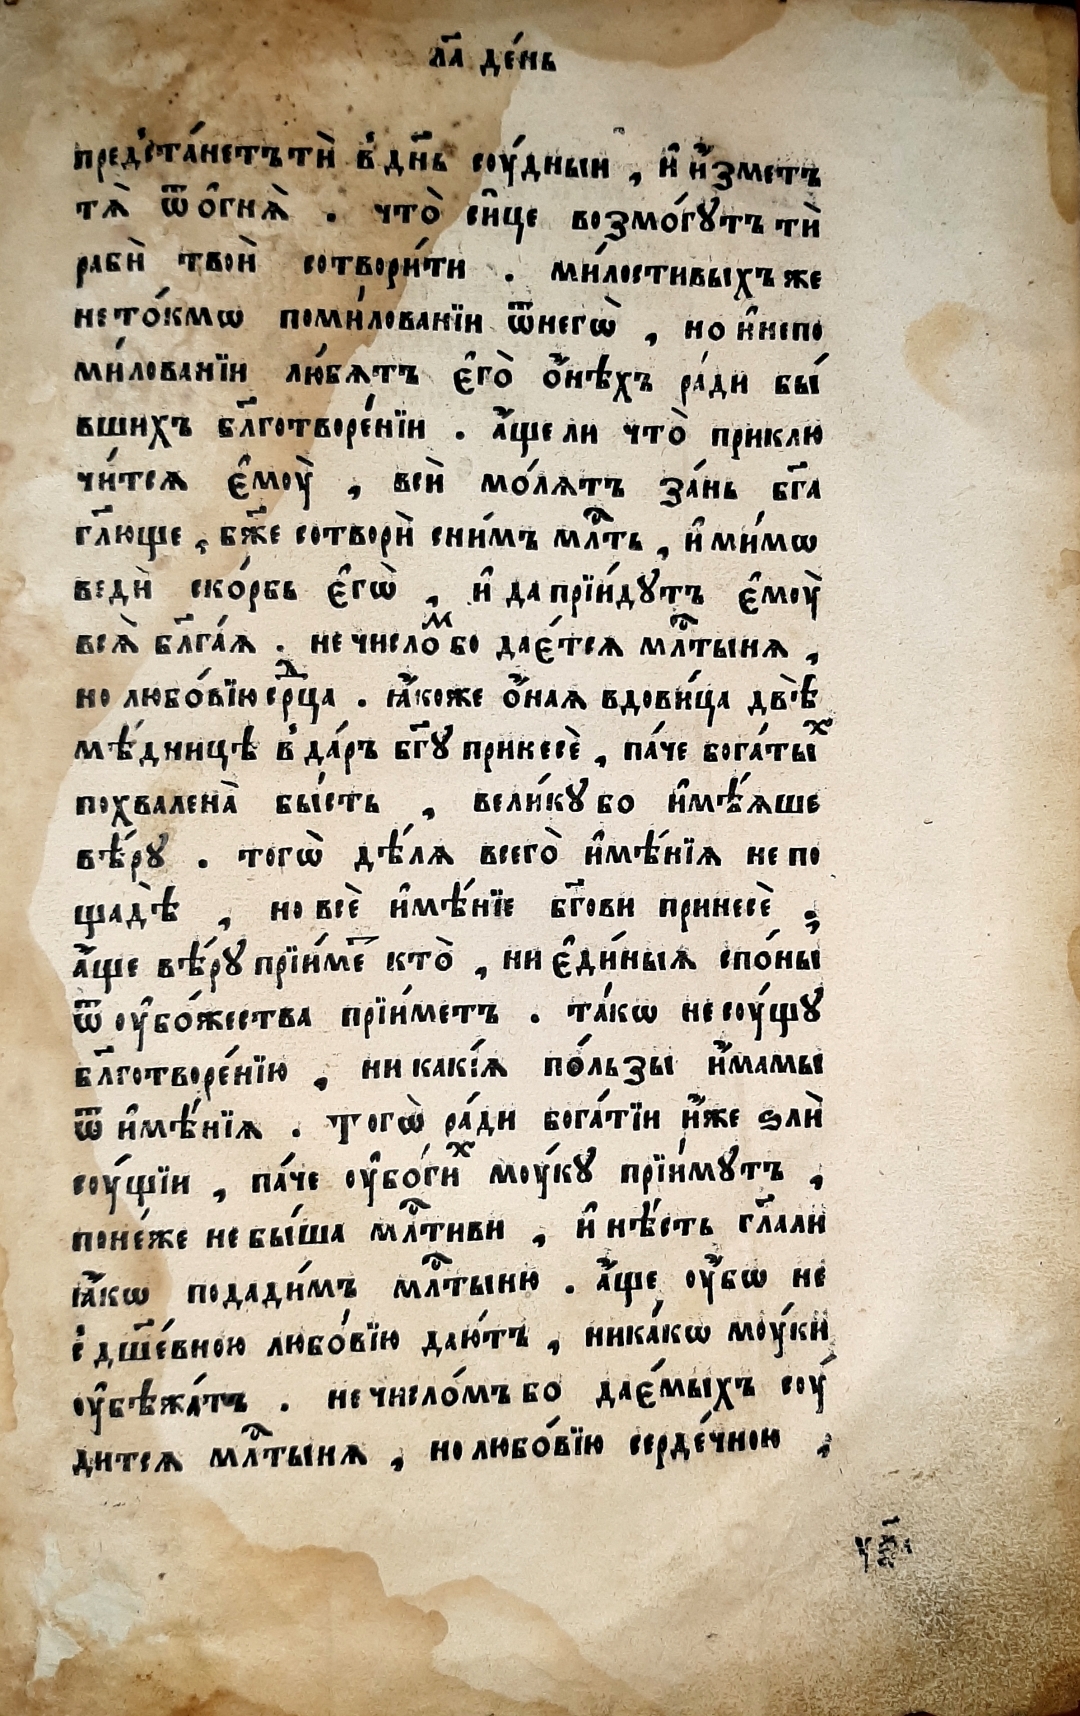 л҃а де́нь
предⸯста́нетъ тѝ вⸯ дн҃ь соу́дныи , и҆ и҆́зметъ
тѧ̀ ѿ о҆гнѧ̀ . что̀ си҆це возмо́гꙋтъ ти̏
рабѝ твоѝ сотвори́ти . ми́лостивыхъ же
не то́кмѡ поми́лованїи ѿ негѡ̀ , но и҆ непо
ми́лованїи лю́бѧтъ є҆го̀ о҆́нѣхъ ра́ди бы́
вшихъ бл҃готворе́нїи . а҆́ще ли что̀ приклю
чи́тсѧ є҆моу̀ , всѝ мо́лѧтъ за́нь бг҃а
гл҃юще , бж҃е сотворѝ сни́мъ мл҇ть , и҆ ми́мѡ
ведѝ ско́рбь є҆гѡ̀ , и҆ да прїи́дꙋтъ є҆моу̀
всѧ̀ бл҃га́ѧ . не числоⷨ бо дае́тсѧ мл҇тынѧ ,
но любо́вїю срⷣца . ꙗ҆́коже о҆́наѧ вдови́ца двѣ̀
мѣ́дницѣ вⸯ да́ръ бг҃ꙋ принесѐ , па́че бога́тыⷯ
похвалена̀ бы́сть , вели́кꙋ бо и҆мѣ́ѧше
вѣ́рꙋ . тогѡ̀ дѣ́лѧ всего̀ и҆мѣ́нїѧ не по
щадѣ̀ , но всѐ и҆мѣ́нїе бг҃ови принесѐ ;
а҆́ще вѣ́рꙋ прїи́ме҃ кто̀ , ни є҆ди́ныѧ спо́ны
ѿ оу҆бо́жества прїи́метъ . та́кѡ не соу́щꙋ
бл҃готворе́нїю , ни какі́ѧ по́льзы и҆́мамы
ѿ и҆мѣ́нїѧ . тогѡ̀ ра́ди бога́тїи и҆́же ѕлѝ
соу́щїи , па́че оу҆бо́гиⷯ моу́кꙋ прїи́мꙋтъ ,
поне́же не бы́ша мл҇тиви , и҆ нѣ́сть гл҃али
ꙗ҆́кѡ подади́мъ мл҇тыню . а҆́ще оу҆́бѡ не
сⸯ дш҃е́вною любо́вїю даю́тъ , ника́кѡ моу́ки
оу҆бѣжа́тъ . не число́мъ бо дае́мыхъ соу́
дитсѧ мл҇тынѧ , но любо́вїю серде́чною ,